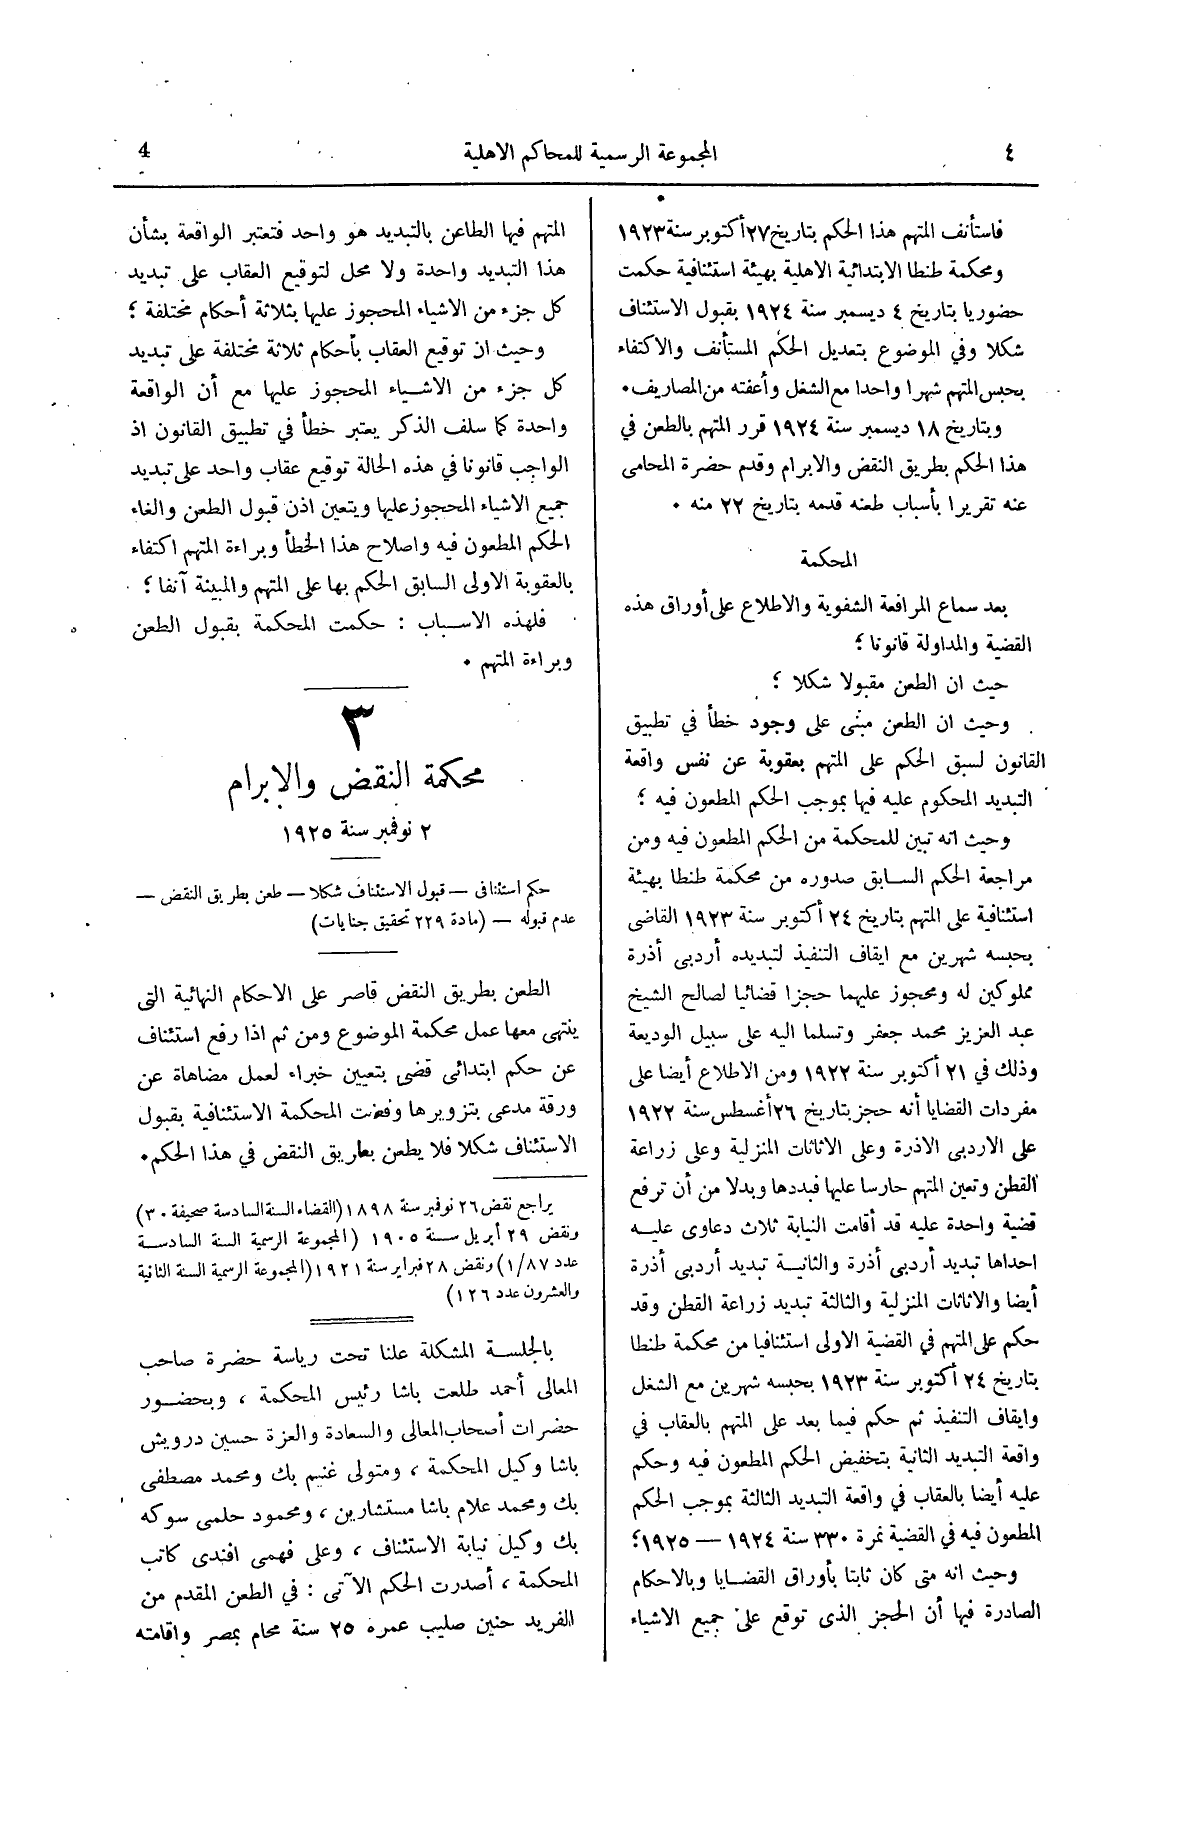 ٤
المجموعة الرسمية للمحاكم الاهلية
4
فاستأنف المتهم هذا الحكم بتاريخ ٢٧ أكتوبر سنة ١٩٢٣
ومحكمة طنطا الابتدائية الاهلية بهيئة استئنافية حكمت
حضوريا بتاريخ ٤ ديسمبر سنة ١٩٢٤ بقبول الاستئناف
شكلا وفي الموضوع بتعديل الحكم المستأنف والاكتفاء
بحبس المتهم شهرا واحدا مع الشغل وأعفته من المصاريف.
وبتاريخ ١٨ ديسمبر سنة ١٩٢٤ قرر المتهم بالطعن في
هذا الحكم بطريق النقض والابرام وقدم حضرة المحامى
عنه تقريرا بأسباب طعنه قدمه بتاريخ ٢٢ منه .
المحكمة
بعد سماع المرافعة الشفوية والاطلاع على أوراق هذه
القضية والمداولة قانونا ؛
حيث ان الطعن مقبولا شكلا ؛
وحيث ان الطعن مبنى على وجود خطأ في تطبيق
القانون لسبق الحكم على المتهم بعقوبة عن نفس واقعة
التبديد المحكوم عليه فيها بموجب الحكم المطعون فيه ؛
وحيث انه تبين للمحكمة من الحكم المطعون فيه ومن
مراجعة الحكم السابق صدوره من محكمة طنطا بهيئة
استئنافية على المتهم بتاريخ ٢٤ أكتوبر سنة ١٩٢٣ القاضى
بحبسه شهرين مع ايقاف التنفيذ لتبديده أردبى أذرة
مملوكين له ومحجوز عليهما حجزا قضائيا لصالح الشيخ
عبد العزيز محمد جعفر وتسلما اليه على سبيل الوديعة
وذلك في ٢١ أكتوبر سنة ١٩٢٢ ومن الاطلاع أيضا على
مفردات القضايا أنه حجز بتاريخ ٢٦ أغسطس سنة ١٩٢٢
على الاردبى الاذرة وعلى الاثاثات المنزلية وعلى زراعة
القطن وتعين المتهم حارسا عليها فبددها وبدلا من أن ترفع
قضية واحدة عليه قد أقامت النيابة ثلاث دعاوى عليه
احداها تبديد أردبى أذرة والثانية تبديد أردبى أذرة
أيضا والاثاثات المنزلية والثالثة تبديد زراعة القطن وقد
حكم على المتهم في القضية الاولى استئنافيا من محكمة طنطا
بتاريخ ٢٤ أكتوبر سنة ١٩٢٣ بحبسه شهرين مع الشغل
وايقاف التنفيذ ثم حكم فيما بعد على المتهم بالعقاب في
واقعة التبديد الثانية بتخفيض الحكم المطعون فيه وحكم
عليه أيضا بالعقاب في واقعة التبديد الثالثة بموجب الحكم
المطعون فيه في القضية نمرة ٣٣٠ سنة ١٩٢٤ — ١٩٢٥؛
وحيث انه متى كان ثابتا بأوراق القضايا وبالاحكام
الصادرة فيها أن الحجز الذى توقع على جميع الاشياء
المتهم فيها الطاعن بالتبديد هو واحد فتعتبر الواقعة بشأن
هذا التبديد واحدة ولا محل لتوقيع العقاب على تبديد
كل جزء من الاشياء المحجوز عليها بثلاثة أحكام مختلفة ؛
وحيث ان توقيع العقاب بأحكام ثلاثة مختلفة على تبديد
كل جزء من الاشياء المحجوز عليها مع أن الواقعة
واحدة كما سلف الذكر يعتبر خطأ في تطبيق القانون اذ
الواجب قانونا في هذه الحالة توقيع عقاب واحد على تبديد
جميع الاشياء المحجوز عليها ويتعين اذن قبول الطعن والغاء
الحكم المطعون فيه واصلاح هذا الخطأ وبراءة المتهم اكتفاء
بالعقوبة الاولى السابق الحكم بها على المتهم والمبينة آنفا ؛
فلهذه الاسباب : حكمت المحكمة بقبول الطعن
وبراءة المتهم .
٣
محكمة النقض والابرام
٢ نوفمبر سنة ١٩٢٥
حكم استئنافى — قبول الاستئناف شكلا — طعن بطريق النقض —
عدم قبوله — (مادة ٢٢٩ تحقيق جنايات)
الطعن بطريق النقض قاصر على الاحكام النهائية التى
ينتهى معها عمل محكمة الموضوع ومن ثم اذا رفع استئناف
عن حكم ابتدائى قضى بتعيين خبراء لعمل مضاهاة عن
ورقة مدعى بتزويرها وقضت المحكمة الاستئنافية بقبول
الاستئناف شكلا فلا يطعن بطريق النقض في هذا الحكم.
يراجع نقض ٢٦ نوفمبر سنة ١٨٩٨ (القضاء السنة السادسة صحيفة ٣٠)
ونقض ٢٩ أبريل سنة ١٩٠٥ (المجموعة الرسمية السنة السادسة
عدد ١/٨٧) ونقض ٢٨ فبراير سنة ١٩٢١ (المجموعة الرسمية السنة الثانية
والعشرون عدد ١٢٦)
بالجلسة المشكلة علنا تحت رياسة حضرة صاحب
المعالى أحمد طلعت باشا رئيس المحكمة ، وبحضور
حضرات أصحاب المعالى والسعادة والعزة حسين درويش
باشا وكيل المحكمة ، ومتولى غنيم بك ومحمد مصطفى
بك ومحمد علام باشا مستشارين ، ومحمود حلمى سوكه
بك وكيل نيابة الاستئناف ، وعلى فهمى افندى كاتب
المحكمة ، أصدرت الحكم الآتى : في الطعن المقدم من
الفريد حنين صليب عمره ٢٥ سنة محام بمصر واقامته